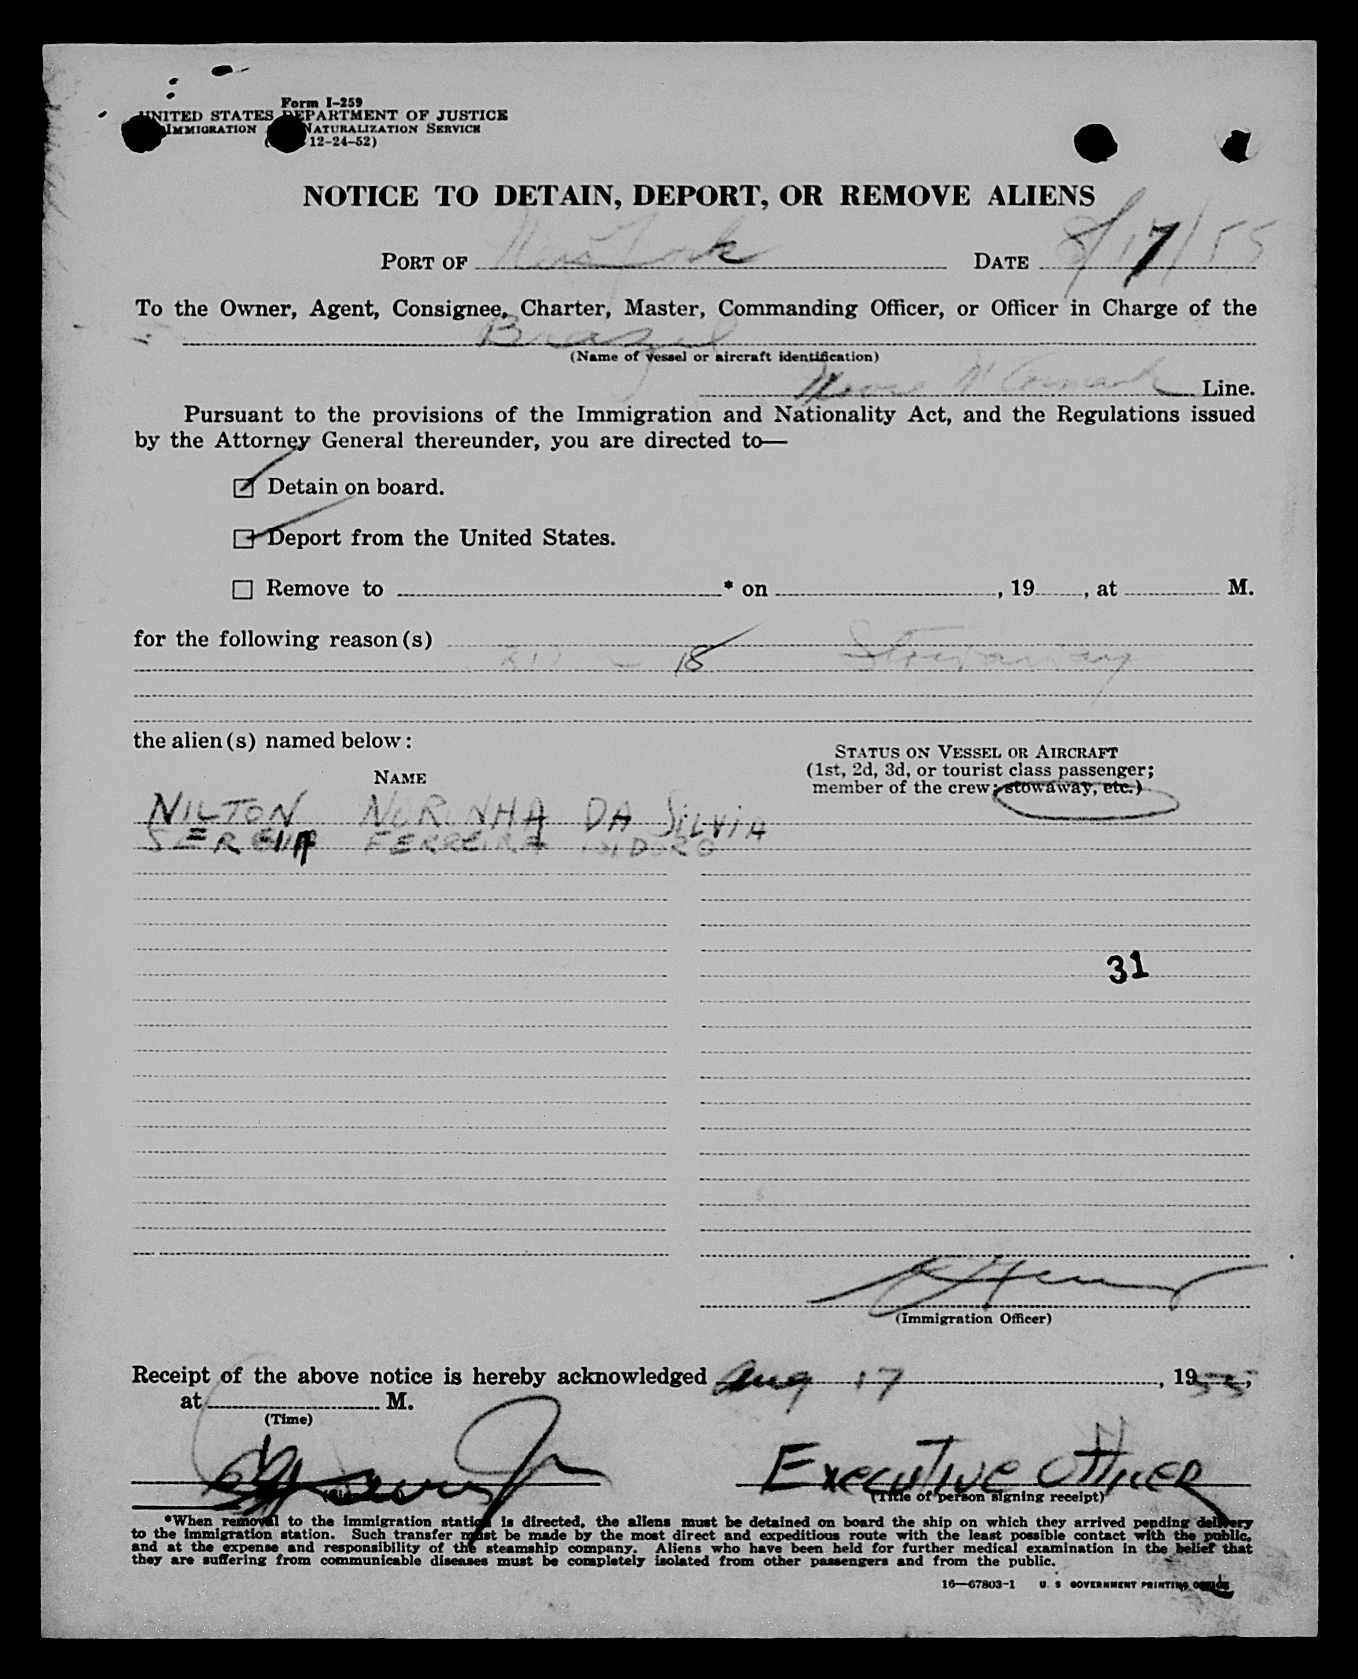 Form I-259
UNITED STATES DEPARTMENT OF JUSTICE
IMMIGRATION NATURALIZATION SERVICE
12-24-52)
NOTICE TO DETAIN, DEPORT, OR REMOVE ALIENS
PORT OF New York DATE 8/17/55
To the Owner, Agent, Consignee, Charter, Master, Commanding Officer, or Officer in Charge of the
Brazil
(Name of vessel or aircraft identification)
Moore McCormack Line.
Pursuant to the provisions of the Immigration and Nationality Act, and the Regulations issued
by the Attorney General thereunder, you are directed to—
Detain on board.
Deport from the United States.
Remove to * on , 19 , at M.
for the following reason(s)
18 Stowaway
the alien(s) named below:
NAME
STATUS ON VESSEL OR AIRCRAFT
(1st, 2d, 3d, or tourist class passenger;
member of the crew; stowaway, etc.)
NILTON NORINHA DA SILVIA
FERREIRA ISIDORO
31
(Immigration Officer)
Receipt of the above notice is hereby acknowledged Aug 17, 1955,
at M.
(Time)
EXECUTIVE OFFICER
(Title of person signing receipt)
*When removal to the immigration station is directed, the aliens must be detained on board the ship on which they arrived pending delivery
to the immigration station. Such transfer must be made by the most direct and expeditious route with the least possible contact with the public,
and at the expense and responsibility of the steamship company. Aliens who have been held for further medical examination in the belief that
they are suffering from communicable diseases must be completely isolated from other passengers and from the public.
16—67803-1 U. S. GOVERNMENT PRINTING OFFICE